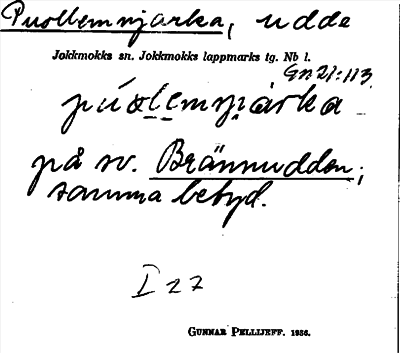 Puollemnjarka, udde
Jokkmokks sn. Jokkmokks lappmarks tg. Nb l.
Gn 21:113.
på sv. Brännudden;
samma betyd.
I 27
GUNNAR PELLIJEFF. 1956.